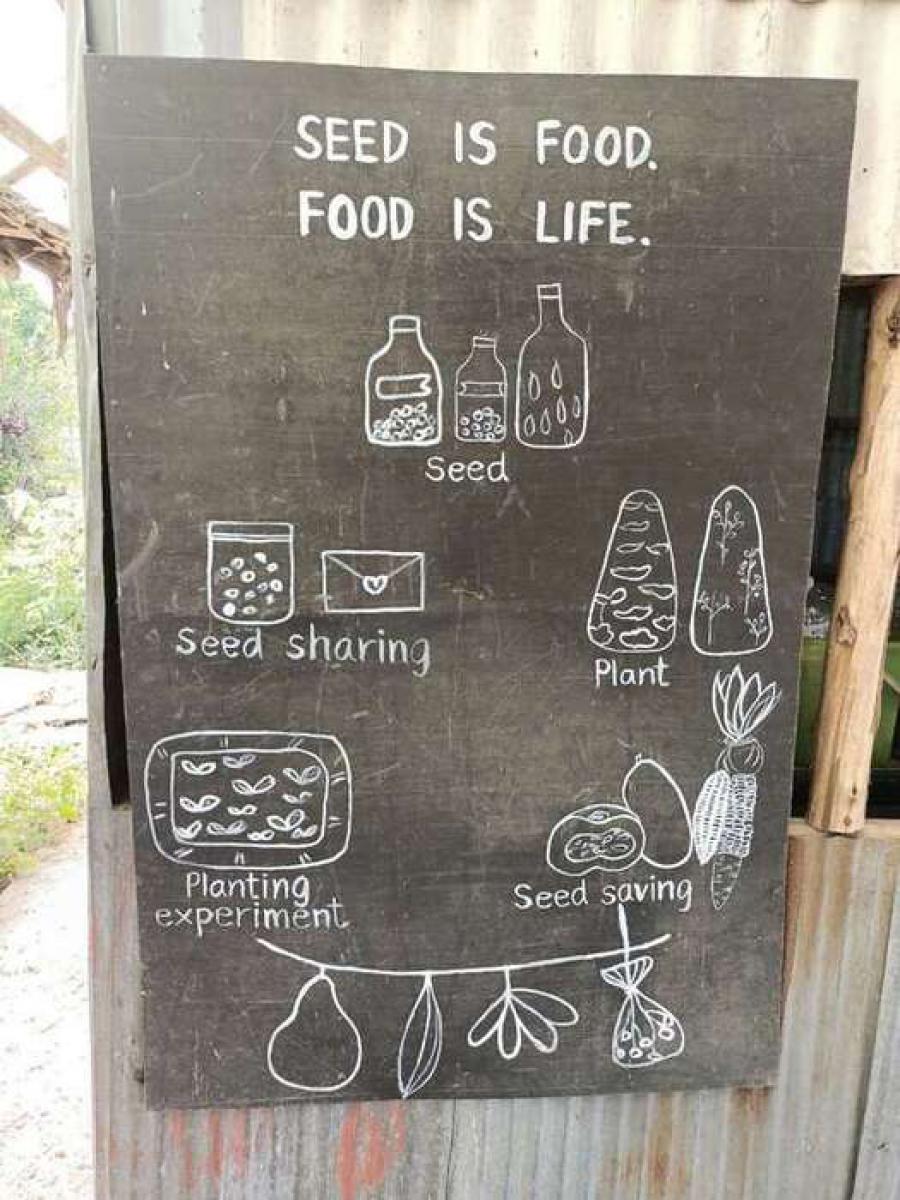 SEED IS FOOD.
FOOD IS LIFE.
Seed
Seed sharing
Plant
Planting
experiment
Seed saving